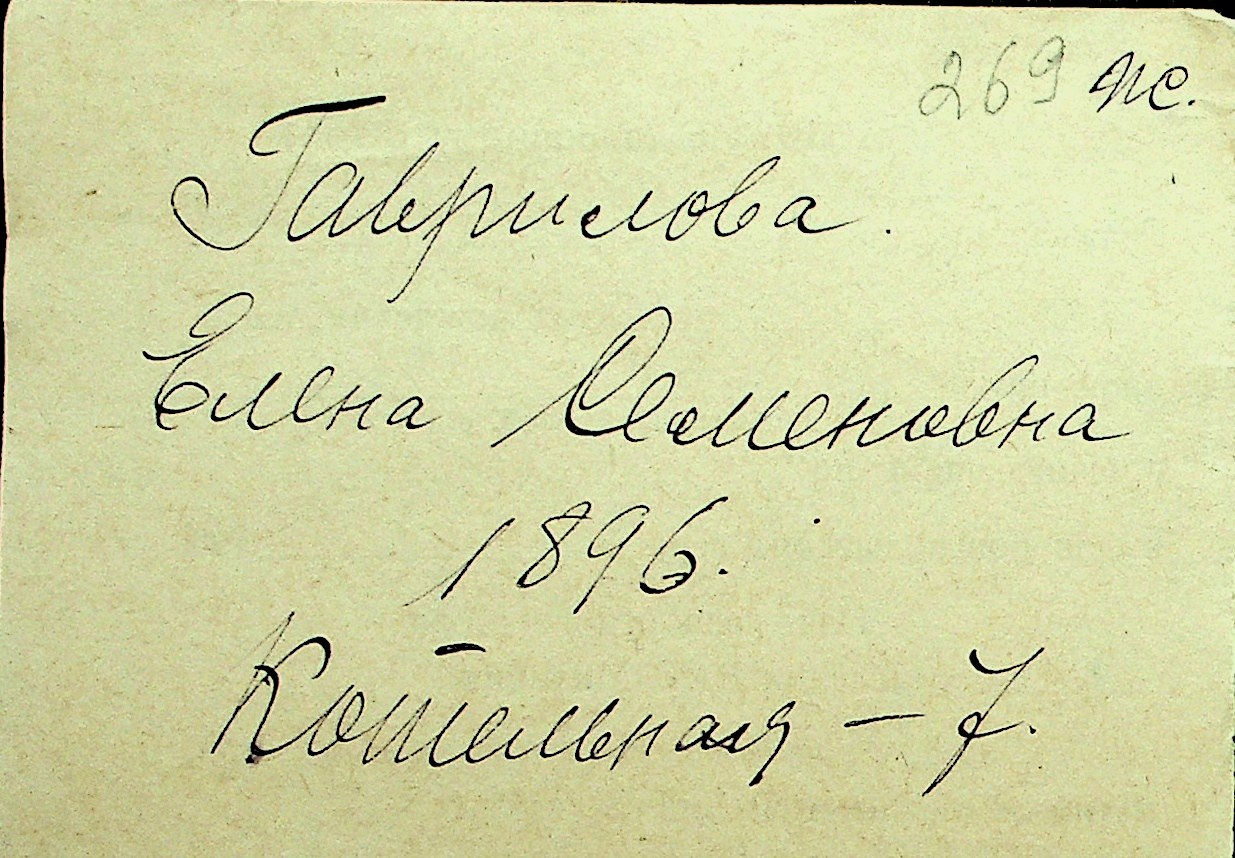 269 пс.
Гаврилова.
Елена Семеновна
1896.
Котельная – 7.